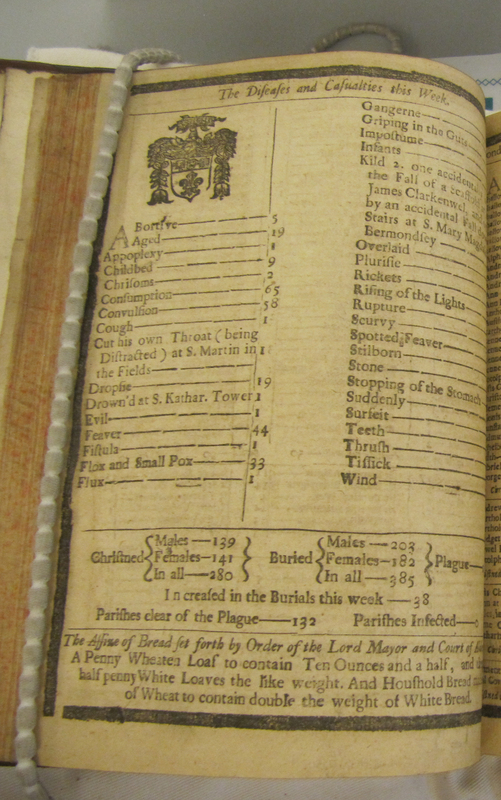 The Diſeaſes and Caſualties this Week.
ABortive 5
Aged 19
Appoplexy 1
Childbed 9
Chriſoms 2
Conſumption 65
Convulſion 58
Cough 1
Cut his own Throat (being
Diſtracted) at S. Martin in 1
the Fields
Dropſie 19
Drown'd at S. Kathar. Tower 1
Evil 1
Feaver 44
Fiſtula 1
Flox and Small Pox 33
Flux 1
Gangerne
Griping in the Guts
Impoſtume
Infants
Kild 2. one accidental
the Fall of a
James Clarkenwel, and
by an accidental Fall
Stairs at S. Mary
Bermondſey
Overlaid
Pluriſie
Rickets
Riſing of the Lights
Rupture
Scurvy
Spotted Feaver
Stilborn
Stone
Stopping of the Stomach
Suddenly
Surfeit
Teeth
Thruſh
Tiſſick
Wind
Chriſtned Males 139 Females 141 In all 280
Buried Males 203 Females 182 In all 385
Plague
Increaſed in the Burials this week 38
Pariſhes clear of the Plague 132 Pariſhes Infected
The Aſſize of Bread ſet forth by Order of the Lord Mayor and Court of
A Penny Wheaten Loaf to contain Ten Ounces and a half, and
half penny White Loaves the like weight. And Houſhold Bread
of Wheat to contain double the weight of White Bread.